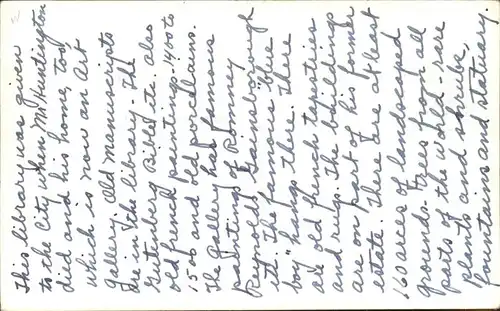 This library was given
to the City when Mr Huntington
died and his home, too,
which is now an Art
Gallery. Old manuscripts
are in the library - The
Gutenberg Bible etc. also
old french paintings - 1400 to
1500 and old porcelains.
The gallery has famous
paintings of Romney
Reynolds Gainsborough
etc. The famous "blue
boy" hangs there. There
are old french tapestries
and rugs. The buildings
are on part of his former
estate. There are at least
160 arces of landscaped
grounds - trees from all
parts of the world - rare
plants and shrubs,
fountains and statuary.